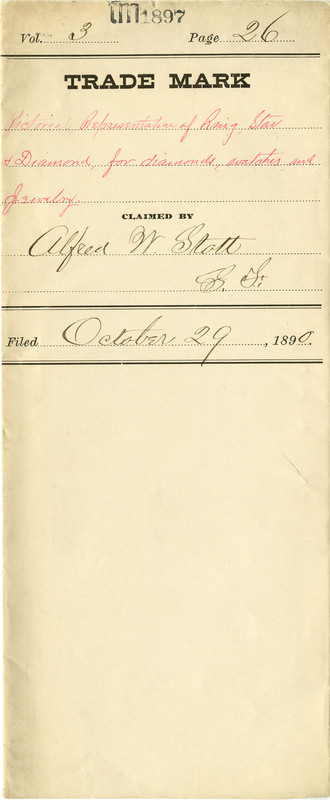 TM 1897
Vol. 3 Page 26
TRADE MARK
Pictorial Representation of Ring, Star
& Diamond, for diamonds, watches and
Jewelry.
CLAIMED BY
Alfred W. Stott
S. F.
Filed October 29, 1890.